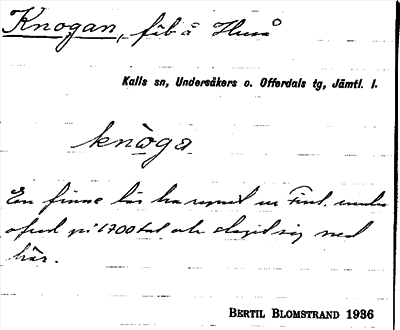 Knogan, fäb å Huså
Kalls sn, Undersåkers o. Offerdals tg, Jämtl. l.
knòga
En finne lär ha rymt ur Finl. under
ofred på 1700 tal och slagit sig ned
här.
BERTIL BLOMSTRAND 1936